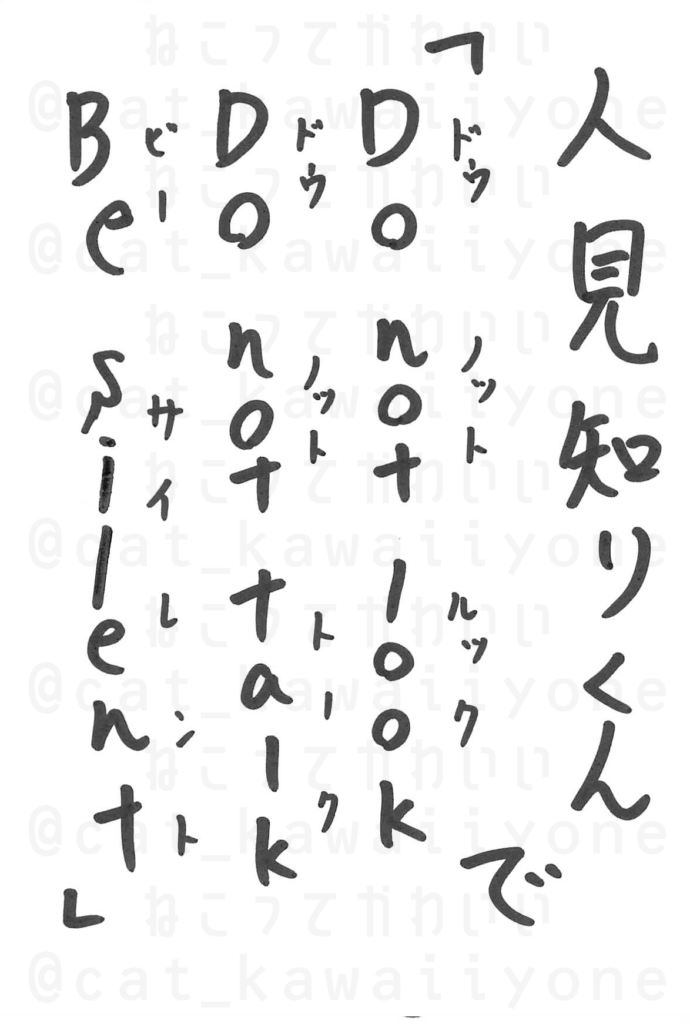 人見知りくんで
「Do not look
ドゥ ノット ルック
Do not talk
ドゥ ノット トーク
Be silent」
ビー サイレント
ねこってかわいい
@cat_kawaiiyone
ねこってかわいい
@cat_kawaiiyone
ねこってかわいい
@cat_kawaiiyone
ねこってかわいい
@cat_kawaiiyone
ねこってかわいい
@cat_kawaiiyone
ねこってかわいい
@cat_kawaiiyone
ねこってかわいい
@cat_kawaiiyone